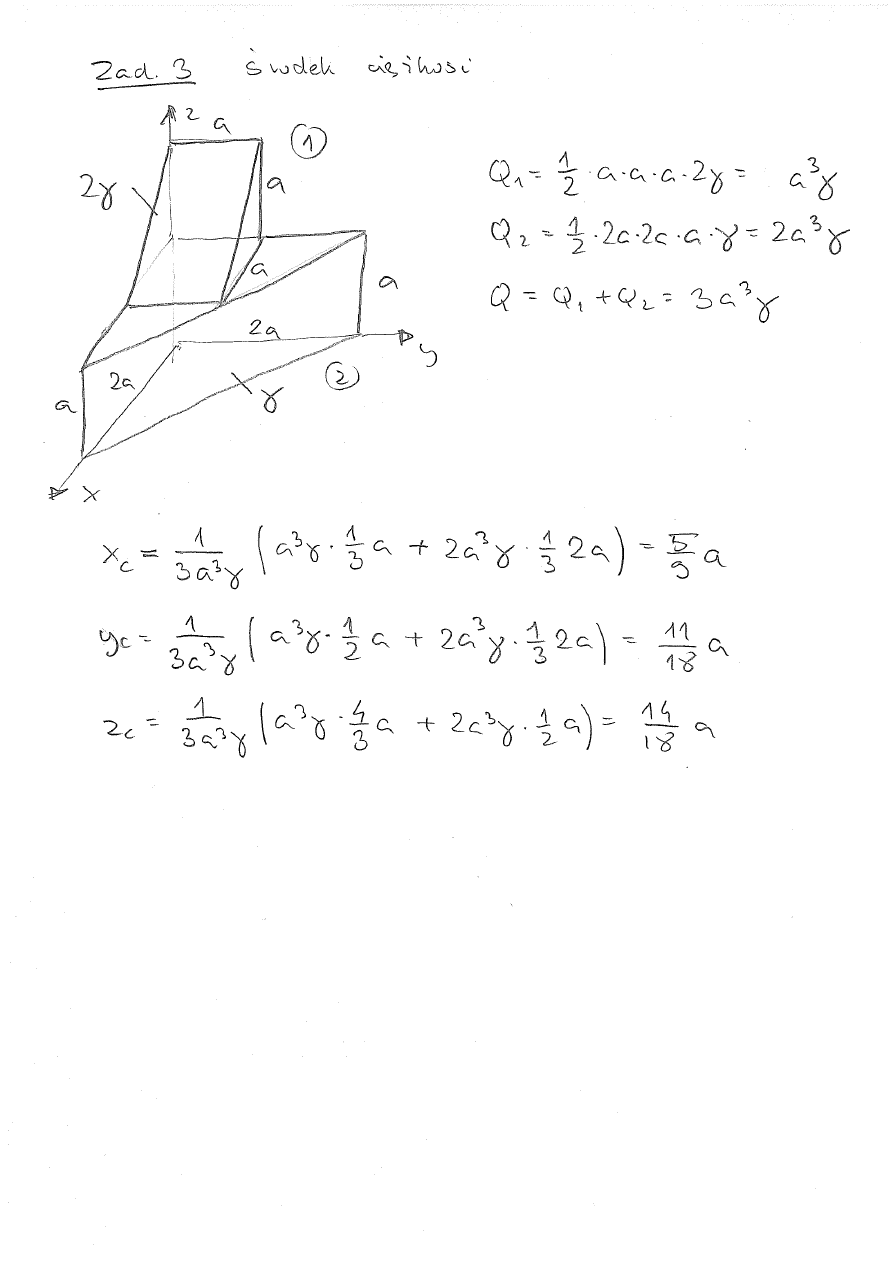 Zad. 3 Środek ciężkości
z
a
1
2γ
a
a
a
2a
y
2a
2
γ
a
x
Q₁ = 1/2 · a · a · a · 2γ = a³γ
Q₂ = 1/2 · 2a · 2a · a · γ = 2a³γ
Q = Q₁ + Q₂ = 3a³γ
x_c = 1/(3a³γ) (a³γ · 1/3 a + 2a³γ · 1/3 2a) = 5/9 a
y_c = 1/(3a³γ) (a³γ · 1/2 a + 2a³γ · 1/3 2a) = 11/18 a
z_c = 1/(3a³γ) (a³γ · 4/3 a + 2a³γ · 1/2 a) = 14/18 a